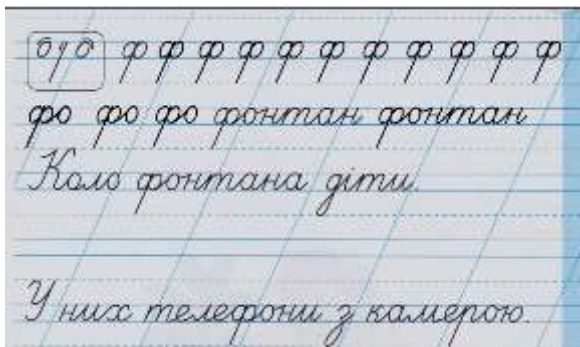 ф ф ф ф ф ф ф ф ф ф ф
фо фо фо фонтан фонтан
Коло фонтана діти.
У них телефони з камерою.